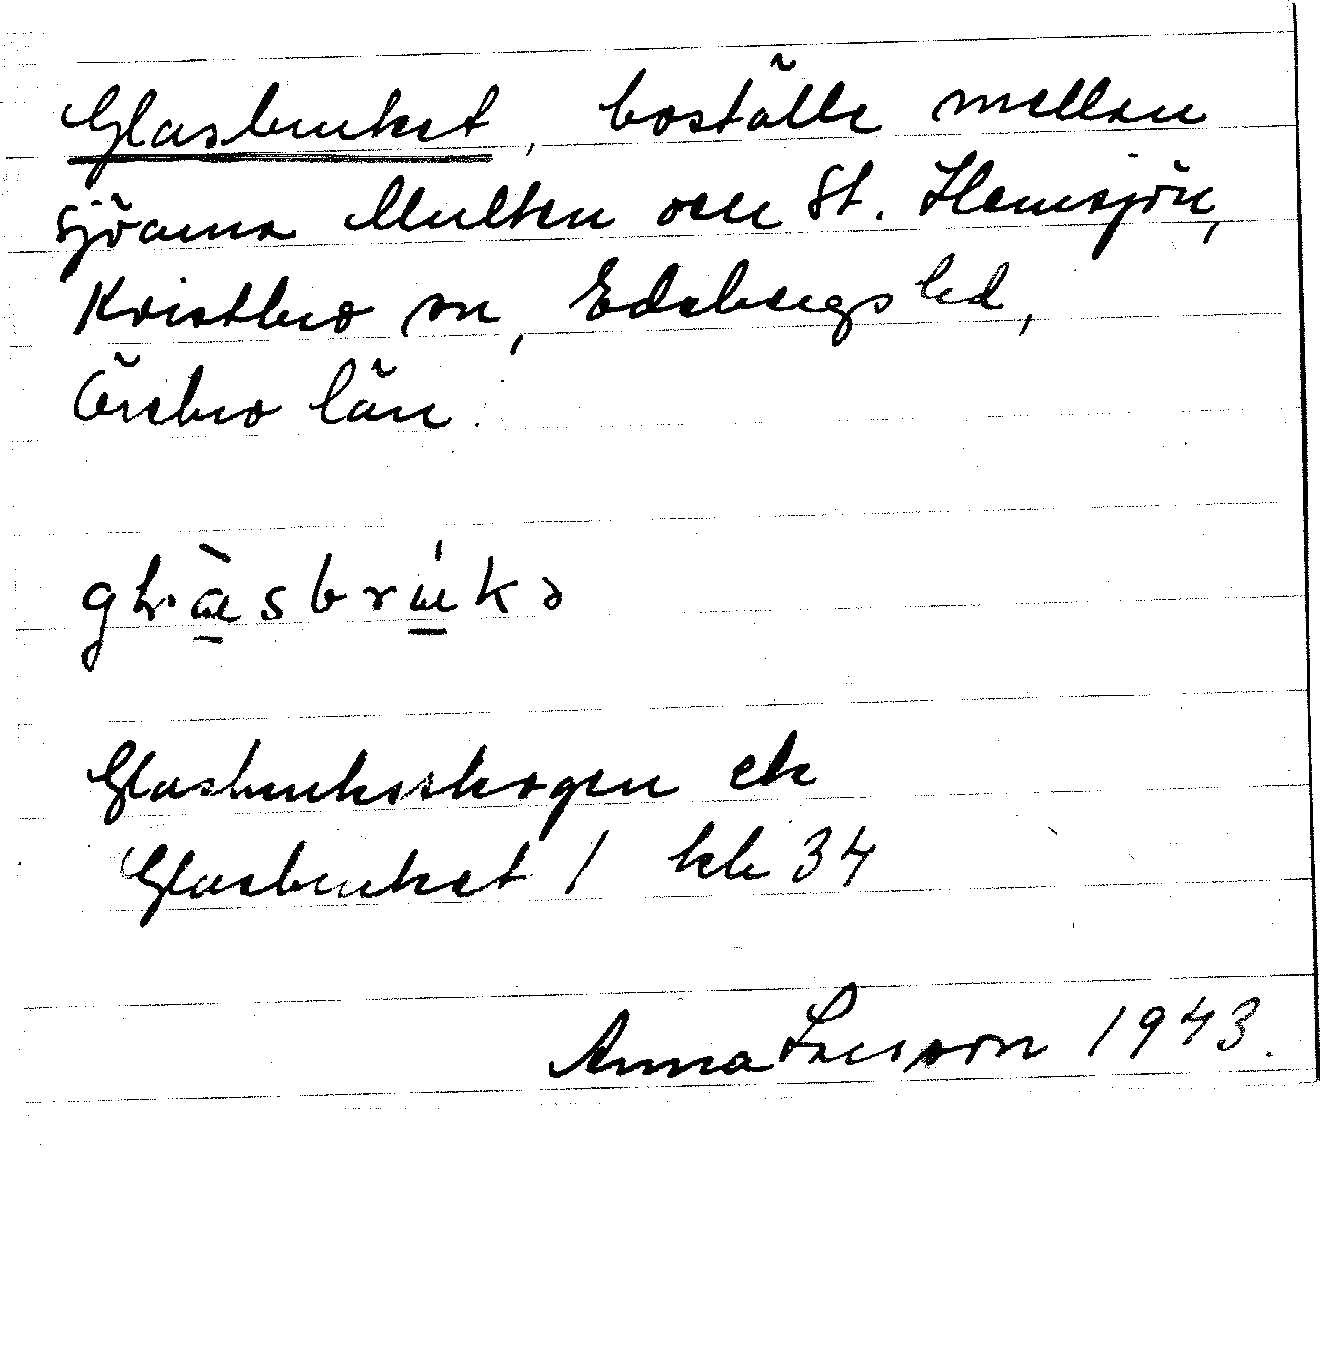 Glasbruket, boställe mellan
sjöarna Multen och St. Hemsjön,
Kvistbro sn, Edsbergs hd,
Örebro län.
Glasbruksskogen ek
Glasbruket 1 kb 34
Anna Larsson 1943.